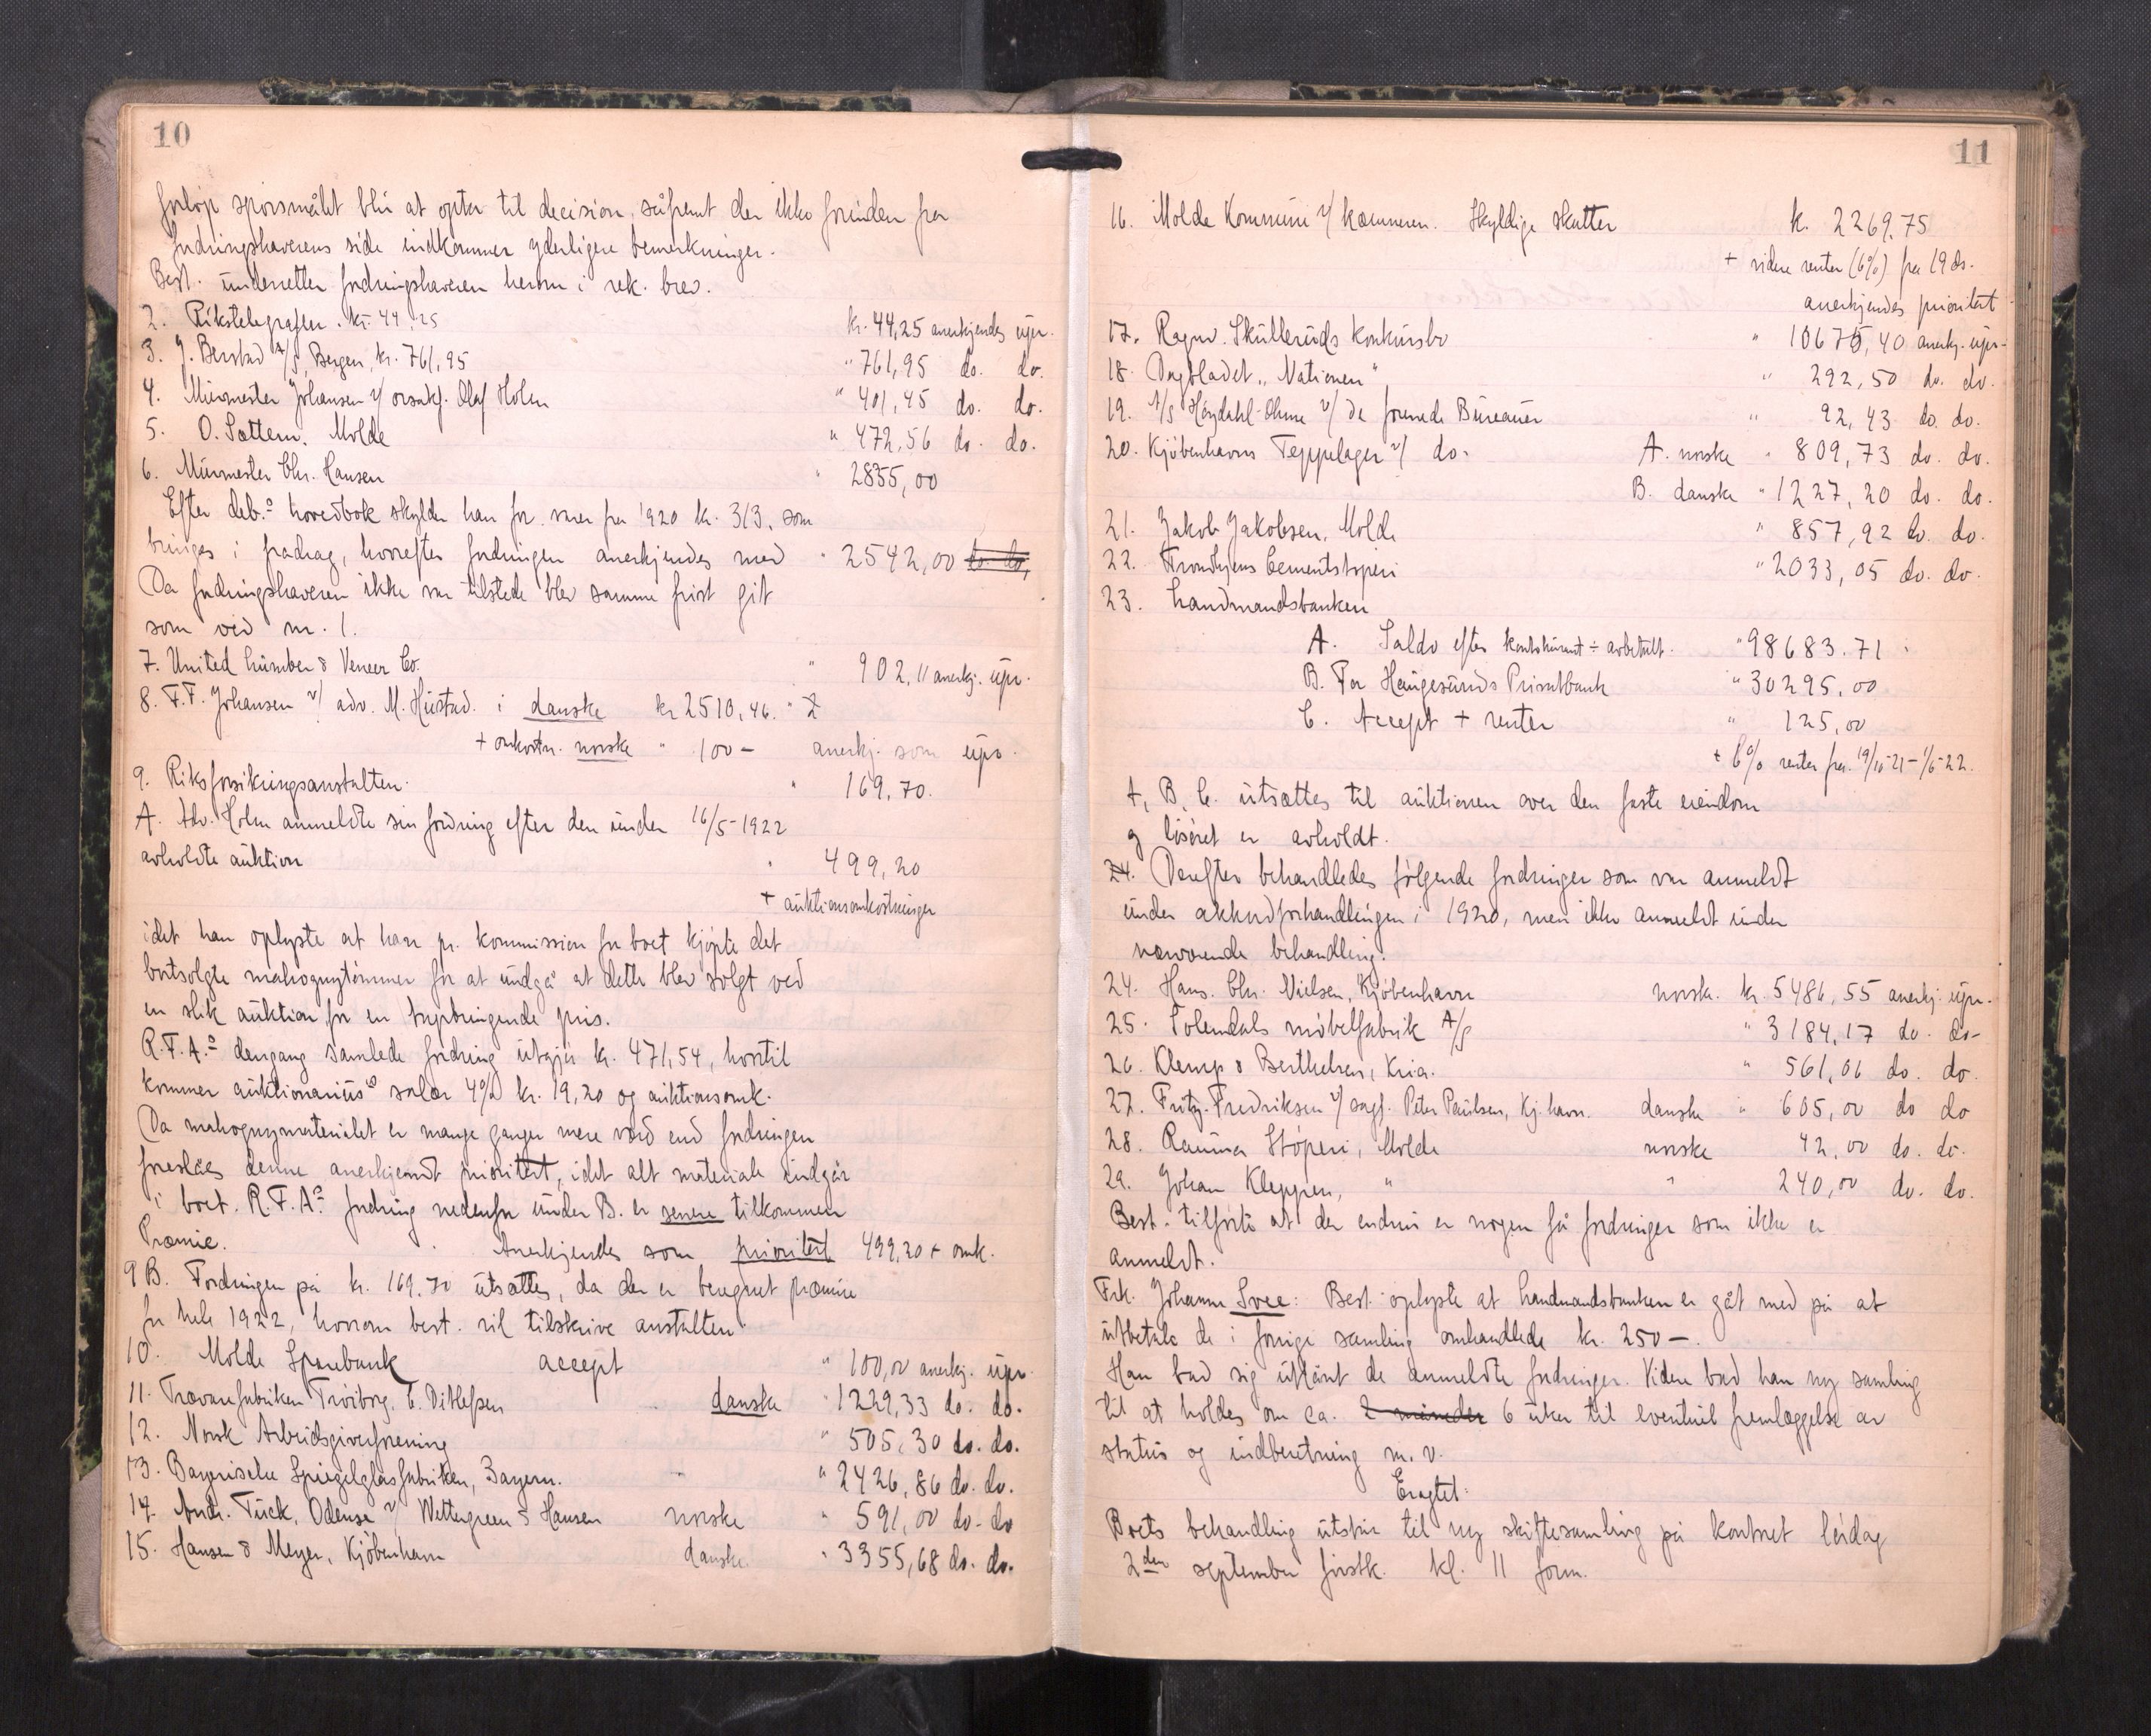 10
forløp spørsmålet blir at optere til decision, såfremt der ikke forinden fra
fordringshaverens side indkommer yderligere bemerkninger.
Best. underretter fordringshaveren herom i rek. brev.
2. Rikstelegrafen. kr. 44,25 kr. 44,25 anerkjendes upr.
3. J. Berstad A/S, Bergen, kr. 761,95 " 761,95 do. do.
4. Murmester Johansen v/ orsakf. Olaf Holm " 401,45 do. do.
5. O. Sættem. Molde " 472,56 do. do.
6. Murmester Chr. Hansen " 2855,00
Efter deb.s hovedbok skylder han for varer fra 1920 kr. 313, som
bringes i fradrag, hvorefter fordringen anerkjendes med " 2542,00 do. do.
Da fordringshaveren ikke var tilstede blev samme frist git
som ved nr. 1.
7. United Lumber & Veneer Co. " 902,11 anerkj. upr.
8. F.F. Johansen v/ adv. M. Hustad. i danske kr 2510,46. "
+ omkostn. norske " 100 – anerkj. som upr.
9. Riksforsikringsanstalten. " 169,70.
A. Adv. Holm anmeldte sin fordring efter den under 16/5-1922
avholdte auktion " 499,20
+ auktionsomkostninger
idet han oplyste at han pr. kommission for boet kjøpte det
bortsolgte mahognytømmer for at undgå at dette blev solgt ved
en slik auktion for en tapbringende pris.
R.F.A.s dengang samlede fordring utgjør kr. 471,54, hvortil
kommer auktionarius's salær 4% kr. 19,20 og auktionsomk.
Da mahognymaterialet er mange ganger mere værd end fordringen
foreslåes denne anerkjendt prioritert, idet alt materiale indgår
i boet. R.F.A.s fordring nedenfor under B. er senere tilkommen
Præmie. Anerkjendes som prioritert 499,20 + omk.
9 B. Fordringen på kr. 169.70 utsættes, da der er beregnet præmie
for hele 1922, hvorom best. vil tilskrive anstalten.
10. Molde Sparebank accept " 100,00 anerkj. upr.
11. Trævarefabriken Trøiborg, C. Ditlefsen danske " 1229,33 do. do.
12. Norsk Arbeidsgiverforening " 505,30 do. do.
13. Bayerische Spiegelglasfabriken, Bayern. " " 2426,86 do. do.
14. Andr. Tück, Odense v/ Wettergreen & Hansen norske " 591,00 do. do
15. Hansen & Meyer, Kjøbenhavn danske " 3355,68 do. do.
11
16. Molde Kommune v/ kæmneren. Skyldige skatter k. 2269,75
+ videre renter (6%) fra 19 ds.
anerkjendes prioritert
17. Ragnv. Skulleruds konkursbo " 10675,40 anerkj. upr.
18. Dagbladet "Nationen" " 292,50 do. do.
19. A/S Høydahl-Ohme v/ de forenede Bureauer " 92,43 do. do.
20. Kjøbenhavns Teppelager v/ do. A. norske " 809,73 do. do.
B. danske " 1227,20 do. do.
21. Jakob Jakobsen, Molde " 857,92 do. do.
22. Trondhjems Cementstøperi " 2033,05 do. do.
23. Landmandsbanken
A. Saldo efter kontokurant ÷ avbetalt. " 98683.71
B. For Haugesunds Privatbank " 30295,00
C. Accept + renter " 125,00
+ 6% renter fra 19/10-21 – 1/6-22.
A, B, C. utsættes til auktionen over den faste eiendom
og løsøret er avholdt.
24. Derefter behandledes følgende fordringer som var anmeldt
under akkordforhandlingen i 1920, men ikke anmeldt under
nærværende behandling.
24. Hans. Chr. Nielsen, Kjøbenhavn norske. kr. 5486,55 anerkj. upr.
25. Tolendals møbelfabrik A/S " 3184,17 do. do-
26. Klemp & Berthelsen, Kria. " 561,06 do. do.
27. Fritz Fredriksen v/ sagf. Peter Paulsen, Kj.havn. danske " 605,00 do do
28. Rauma Støperi, Molde norske 42,00 do. do.
29. Johan Kleppen, " " 240,00 do. do.
Best. tilførte at der endnu er nogen få fordringer som ikke er
anmeldt.
Frk. Johanne Svee: Best. oplyste at Landmandsbanken er gåt med på at
utbetale de i forrige samling omhandlede kr. 250 –.
Han bad sig utlånt de anmeldte fordringer. Videre bad han ny samling
til at holdes om ca. 2 måneder 6 uker til eventuel fremlæggelse av
status og indberetning m. v.
Eragtet:
Boets behandling utstår til ny skiftesamling på kontoret lørdag
2den september førstk. kl. 11 form.